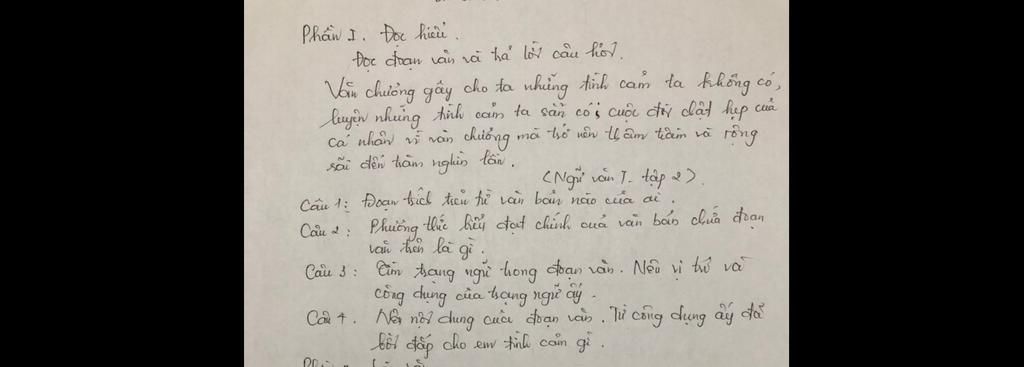 Phần I. Đọc hiểu.
Đọc đoạn văn và trả lời câu hỏi.
Văn chương gây cho ta những tình cảm ta không có,
luyện những tình cảm ta sẵn có; cuộc đời chật hẹp của
cá nhân vì văn chương mà trở nên thâm trầm và rộng
rãi đến trăm nghìn lần.
(Ngữ văn 7. tập 2).
Câu 1: Đoạn trích trên từ văn bản nào của ai.
Câu 2: Phương thức biểu đạt chính của văn bản chứa đoạn
văn trên là gì.
Câu 3: Tìm trạng ngữ trong đoạn văn. Nêu vị trí và
công dụng của trạng ngữ ấy.
Câu 4. Nêu nội dung của đoạn văn. Từ công dụng ấy đã
bồi đắp cho em tình cảm gì.